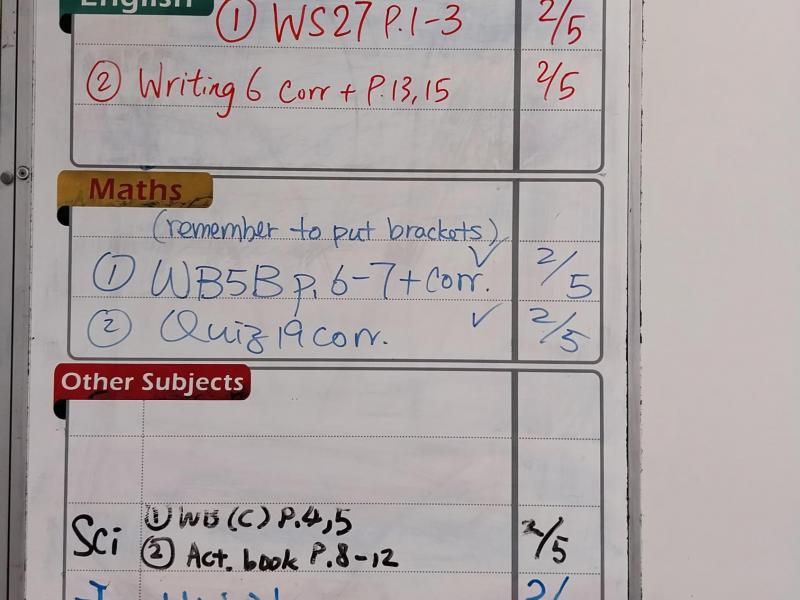 English
① WS27 P.1-3 2/5
② Writing 6 corr + P.13, 15 2/5
Maths
(remember to put brackets)
① WB5B p. 6-7 + corr. ✓ 2/5
② Quiz 19 corr. ✓ 2/5
Other Subjects
Sci ① WB (C) P.4,5
② Act. book P.8-12 2/5